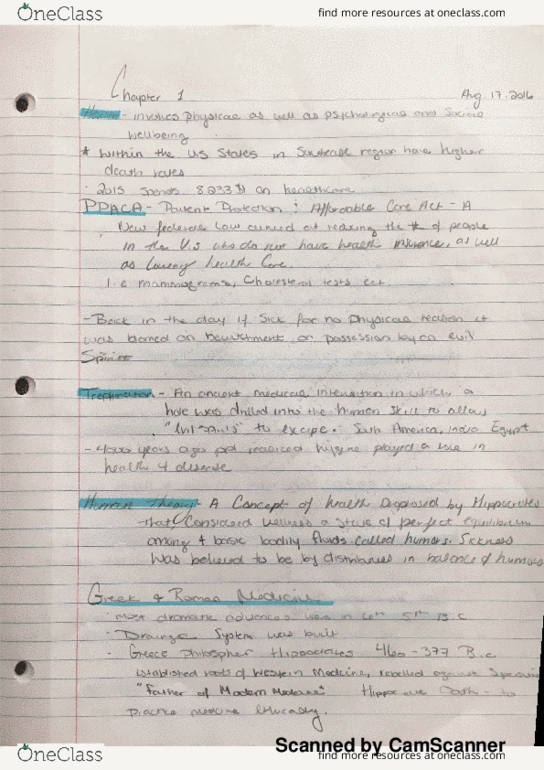 OneClass
find more resources at oneclass.com
Chapter 1
Aug. 17. 2016
Health - involves physical as well as psychological and social
wellbeing
* Within the US States in Southeast region have higher
death rates
· 2015 spends 8233$ on healthcare
PPACA - Patient Protection : Affordable Care Act - A
New federal law aimed at reducing the # of people
in the U.S who do not have health insurance, as well
as lowering health care
I.e mammograms, Cholesterol tests ect.
- Back in the day if sick for no physical reason it
was blamed on bewitchment or possession by an evil
Spirit
Trephination - An ancient medical in which a
hole was drilled into the human skull to allow
"Evil" to escape. South America, India Egypt
- 4000 years ago ppl realized hygine played a role in
health & disease
Humoral Theory - A Concept of health proposed by Hippocrates
that Considered wellness a state of perfect equilibrium
among 4 basic bodily fluids called humors. Sickness
was believed to be by disturbances in balance of humors
Greek & Roman Medicine
· most dramatic advances in 6th 5th B.C
· Drainage System was built
· Greece philospher Hippocrates 460-377 B.c
established roots of western medicine, rebelled against
"Father of Modern Medicine" Hippocratic Oath - to
practice medicine ethically.
Scanned by CamScanner
OneClass
find more resources at oneclass.com